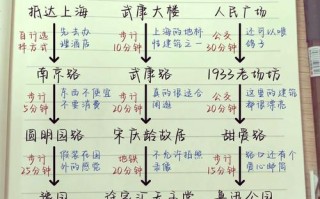 抵达上海 武康大楼 人民广场
自行选择方式 先去办理酒店 步行10分钟 上海的地标性建筑之一 公交30分钟 还可以喂鸽子
南京路 武康路 1933老场坊
步行5分钟 东西不便宜不要消费 步行20分钟 真的很适合闲逛 公交20分钟 这里的建筑都很漂亮
圆明园路 宋庆龄故居 甜爱路
步行25分钟 假装在国外的感觉 地铁20分钟 不允许拍照 步行15分钟 路口还有个爱心邮筒
豫园 徐家汇天主堂 鲁迅公园